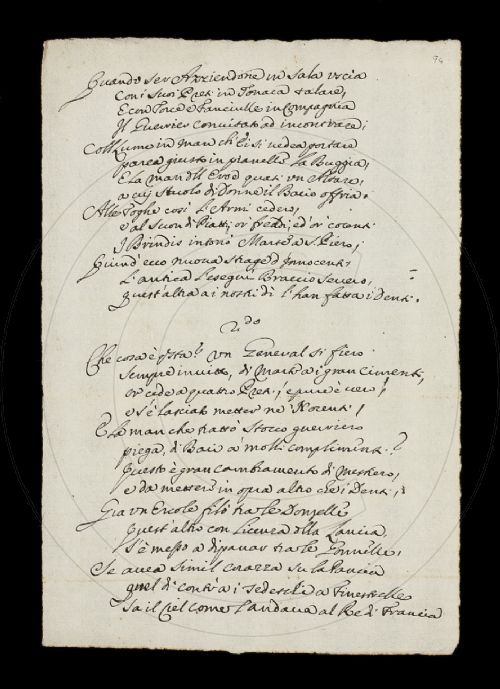 94
Quando ser Arziendone in Sala uscia
Con i suoi Preti in Tonaca talare,
E con Torce e Fanciulle in Compagnia
Il Guerrier Convitato ad incontrare;
Col Lume in man ch'Ei si vedea portare
Parea giusto in pianelle la Buggia,
E la man dell' quasi un Altare,
a cui stuolo di Donne il Bacio offria.
Alle Toghe così l'Armi cedero,
e al Suon di Piatti, or freddi, ed or
I Brindis intonò Marte a S. Piero,
Quind' ecco nuova strage d'Innocenti
L'antica l'eseguì Braccio Severo,
quest'altra ai nostri dì l'han fatta i Denti.
2.do
Che cosa è questa? Un General sì fiero
Sempre invitto, di Marte ai gran Cimenti,
or cede a quattro Preti! e pure è vero!
e s'è lasciato metter ne'
E la man che trattò Stocco guerriero
piega di Baci a molti complimenti?
Questo è gran cambiamento di Mestiero,
e da mettersi in opra altro che i Denti,
Già un Ercole filò tra le Donzelle
Quest'altro con Licenza della Lancia
S'è messo a dipanar tra le Gonnelle,
Se avea simil Corazza su la Pancia
quel dì contra i Tedeschi a Finestrelle
Sa il Ciel come l'andava al Re di Francia